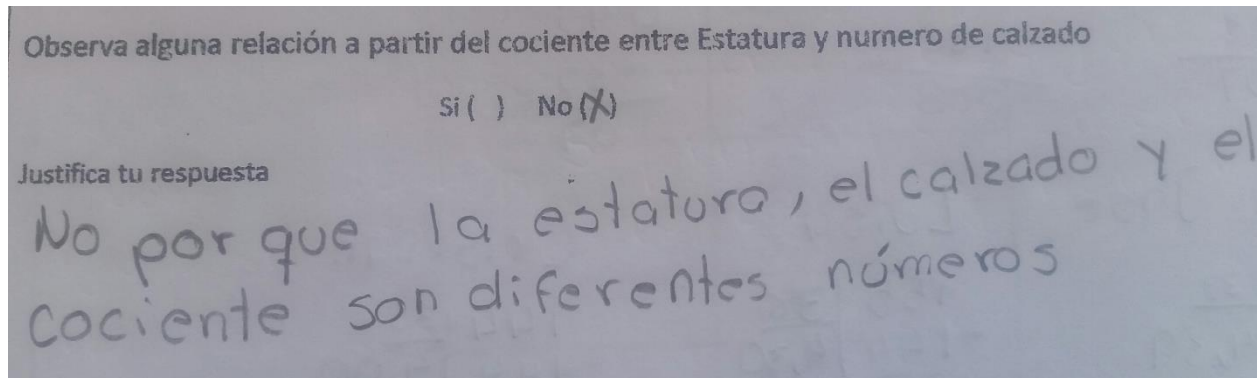 Observa alguna relación a partir del cociente entre Estatura y numero de calzado
Si ( ) No (X)
Justifica tu respuesta
No por que la estatura, el calzado y el
cociente son diferentes números